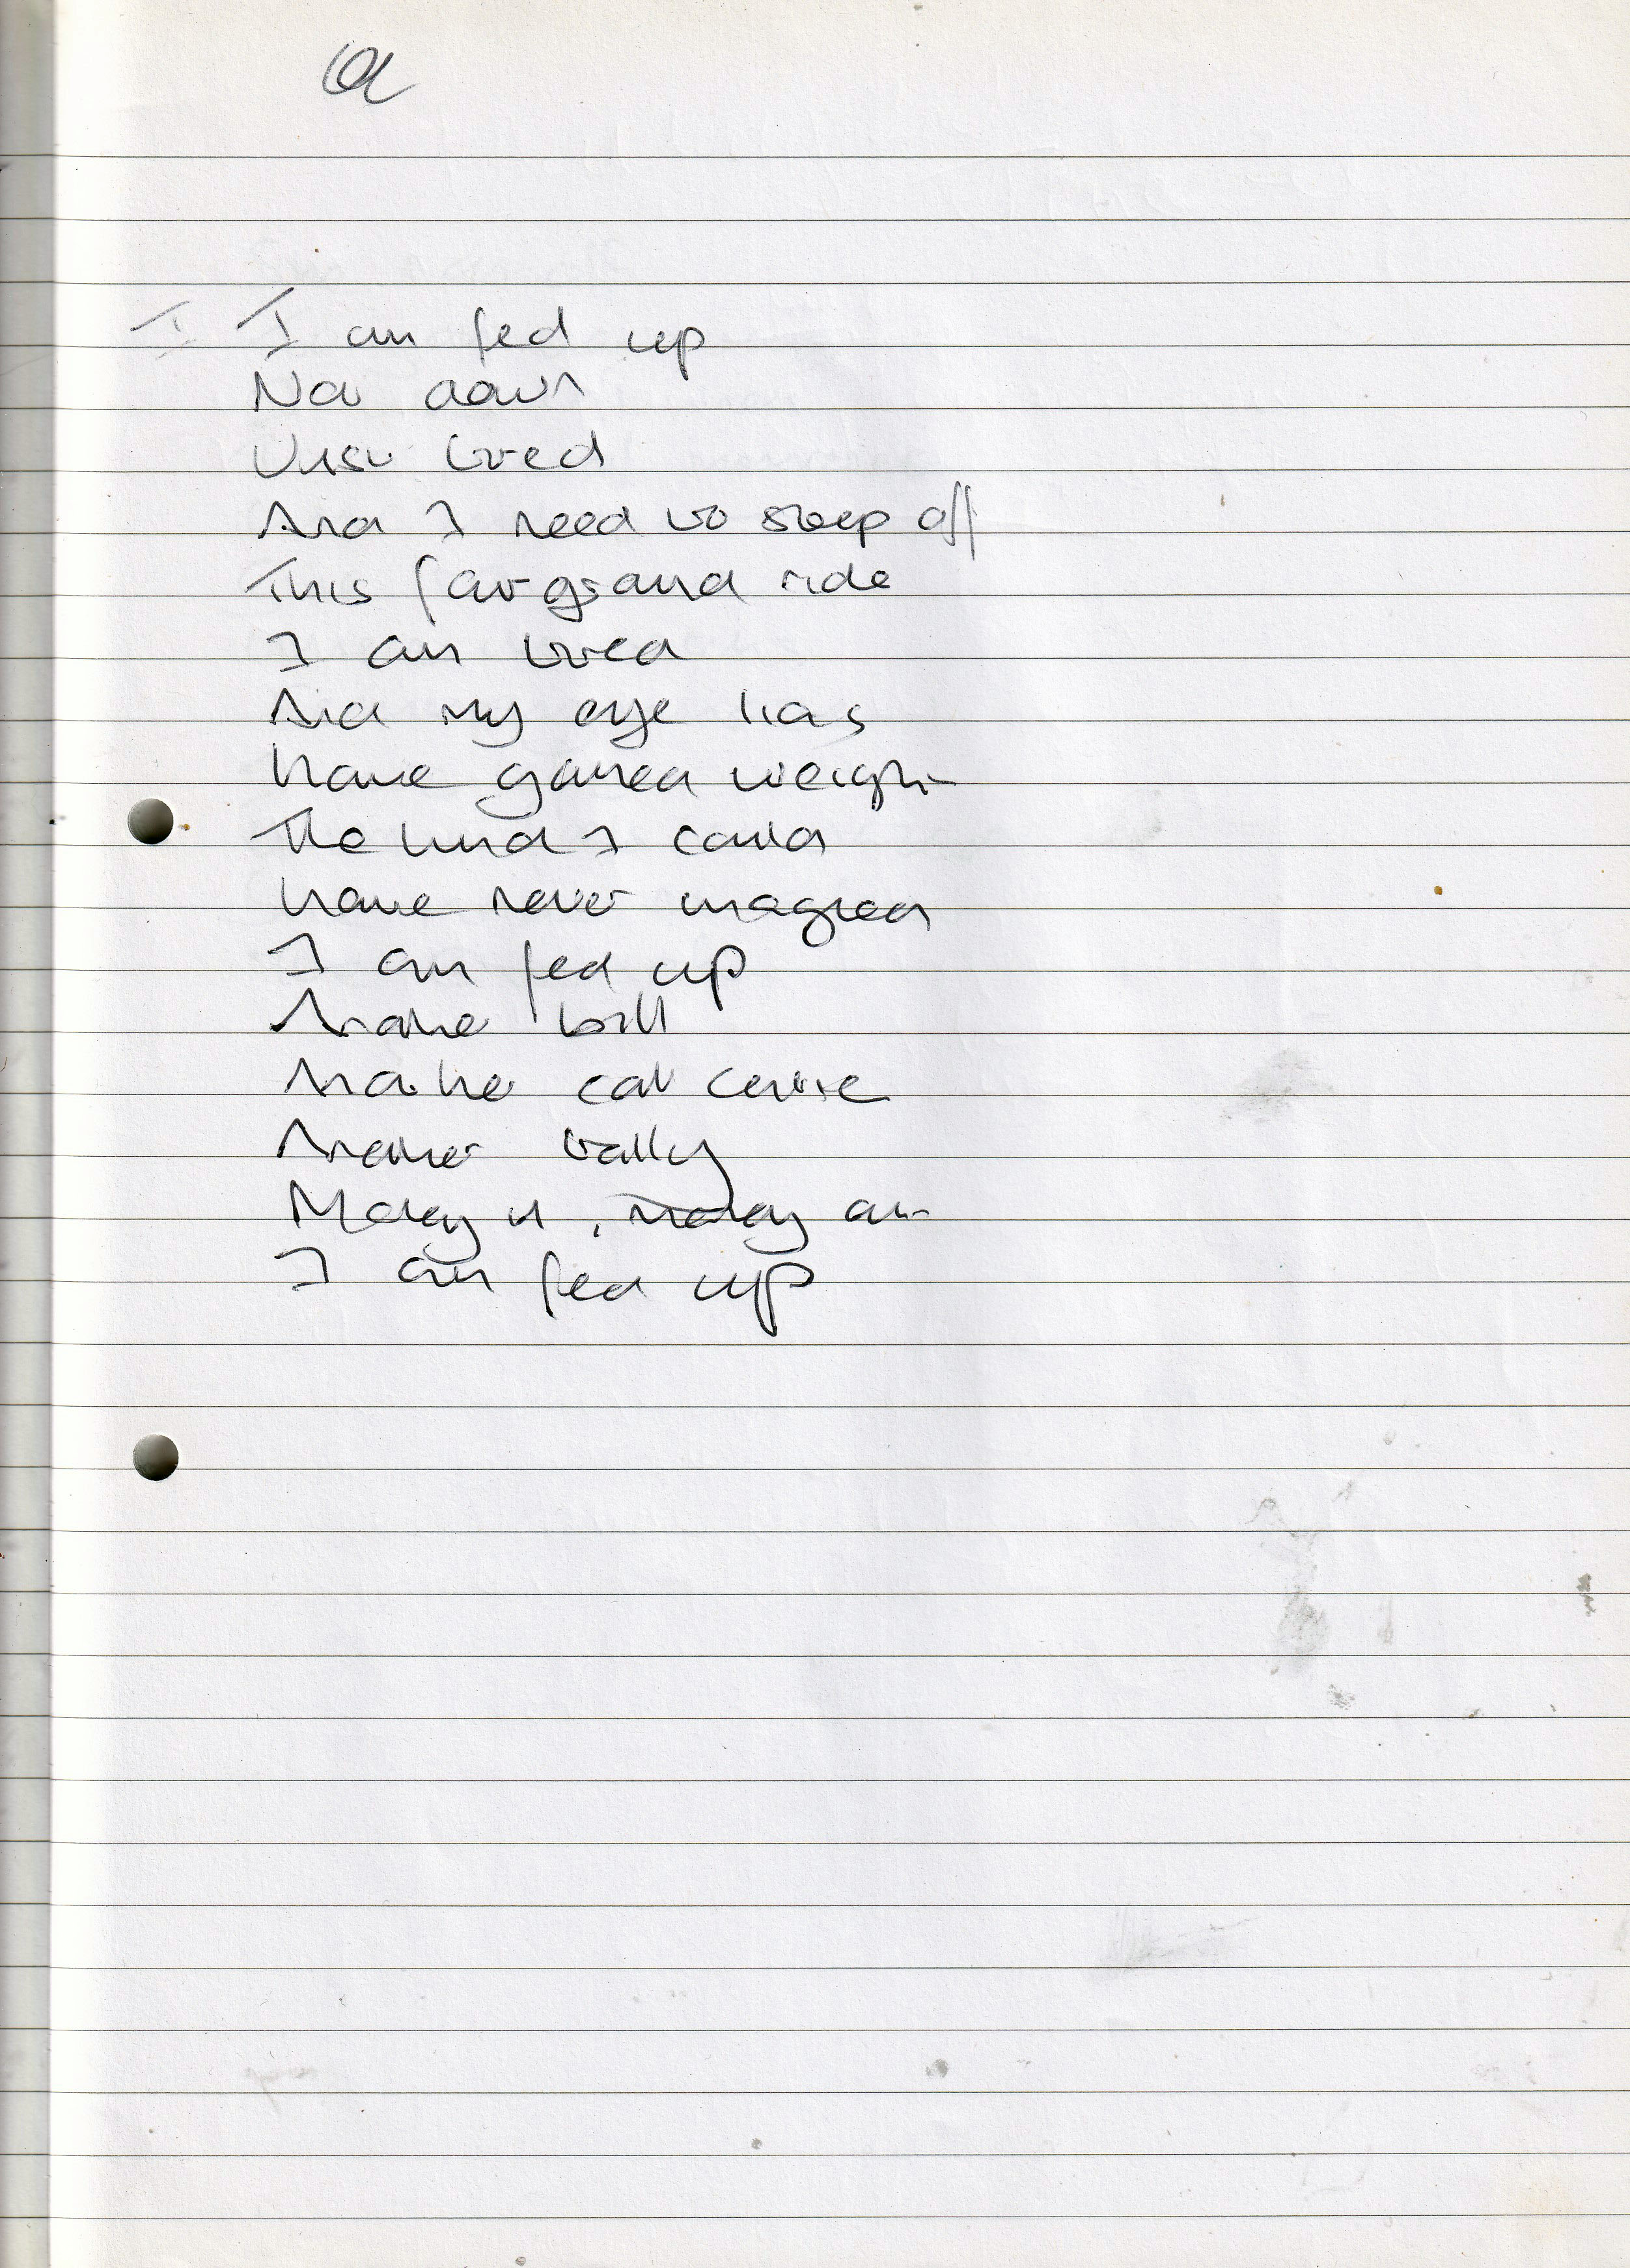 I I am fed up
Not down
Just tired
And I need to sleep off
This fairground ride
I am tired
And my eye lids
have gained weight
The kind I could
have never imagined
I am fed up
Another bill
Another call centre
Another tally
Money in, money out
I am fed up